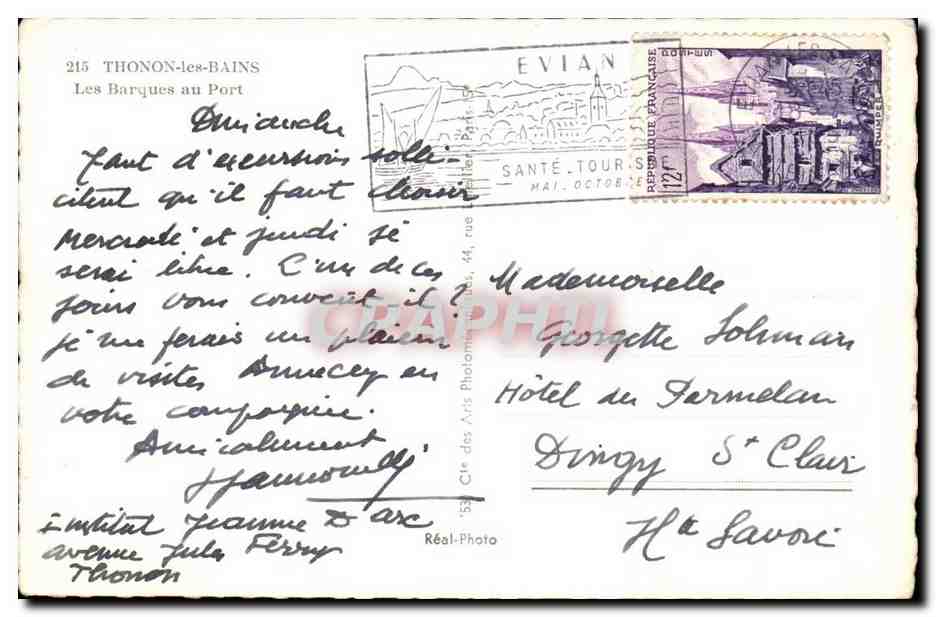 215 THONON-les-BAINS
Les Barques au Port
Dimanche
Tant d'excursions solli-
citent qu'il faut choisir
Mercredi et jeudi je
serai libre. L'un de ces
jours vous convent-il ?
je me ferais un plaisir
de visiter Annecy en
votre compagnie.
Amicalement
Institut Jeanne D'arc
avenue Jules Ferry
Thonon
EVIAN
SANTÉ_TOURIS
MAI_OCTOBRE
RÉPUBLIQUE FRANÇAISE
POSTES
12F
QUIMPER
Mademoiselle
Georgette
Hôtel du Parmelan
Dingy St Clair
Hte Savoie
'53 Cie des Arts Photomécaniques, 44, rue Paris-15e
Réal-Photo
CPAPHIL